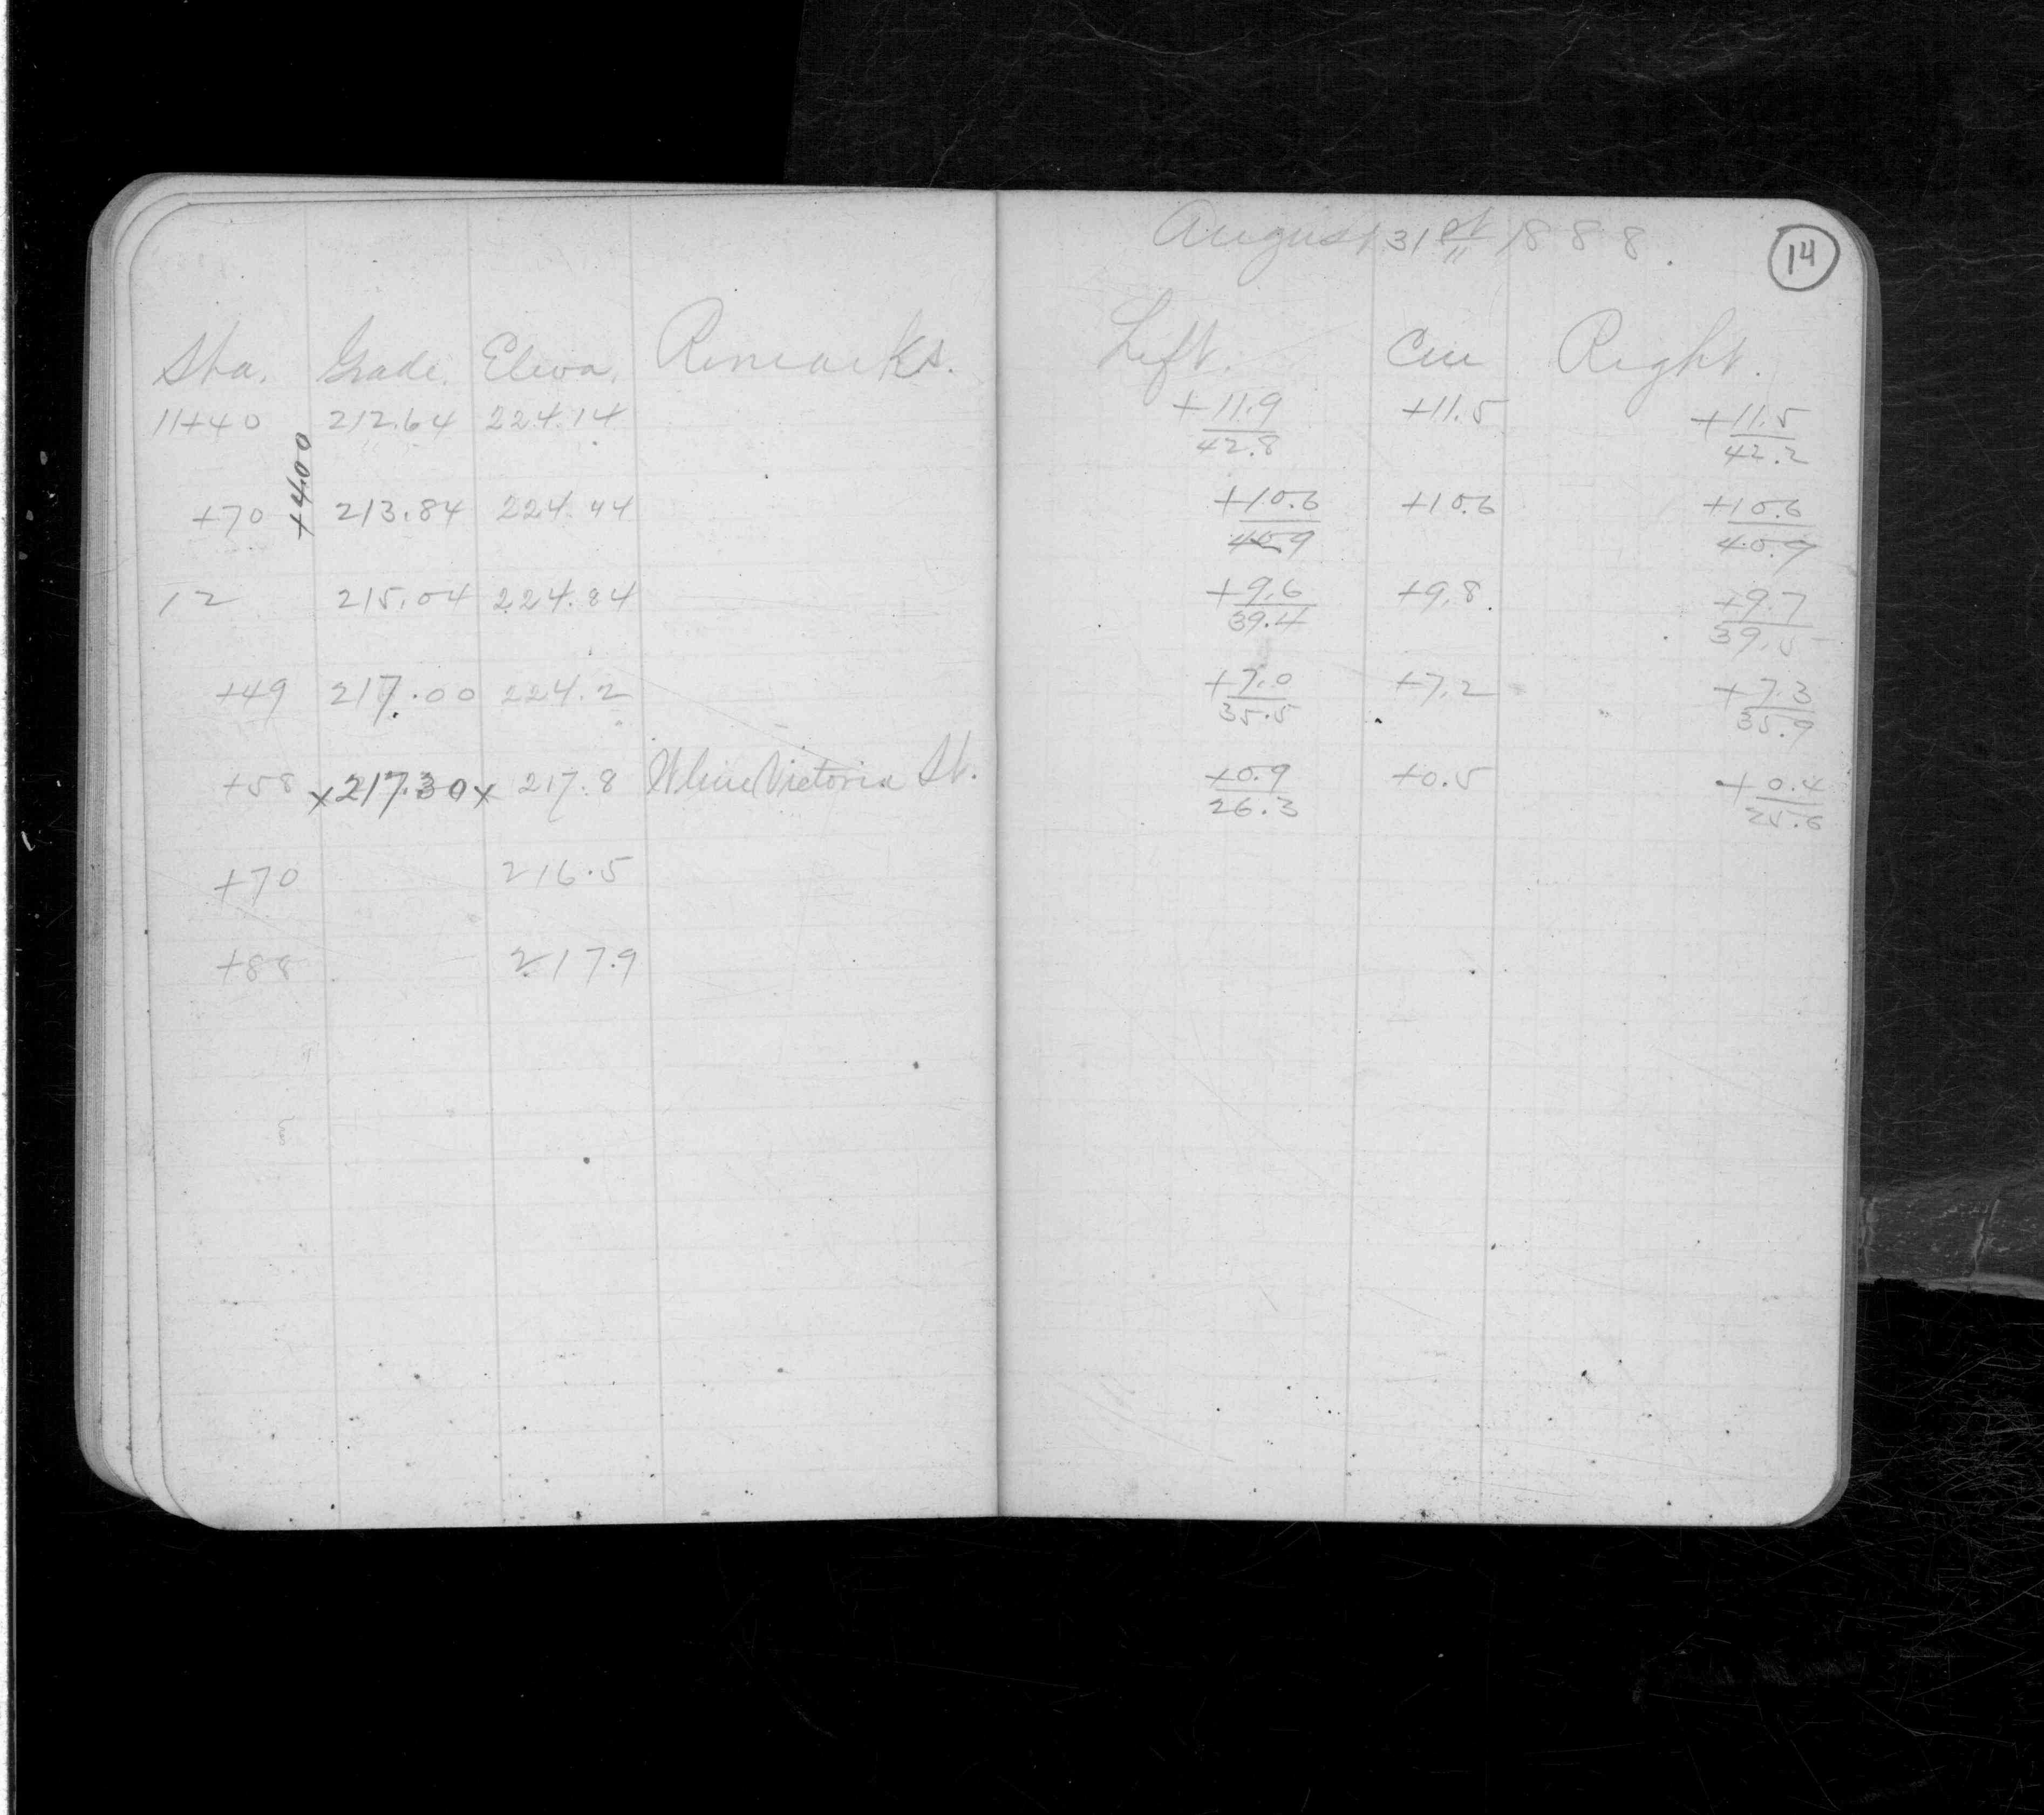 August 31st 1888.
14
Sta. Grade. Eleva. Remarks. Left. Cen Right.
11+40 212.64 224.14 +11.9 +11.5 +11.5
42.8 42.2
+4.00
+70 213.84 224.44 +10.6 +10.6 +10.6
40.9 40.9
12 215.04 224.84 +9.6 +9.8 +9.7
39.4 39.5
+49 217.00 224.2 +7.0 +7.2 +7.3
35.5 35.9
+58 x217.30x 217.8 W line Victoria St. +0.9 +0.5 +0.4
26.3 25.6
+70 216.5
+88 217.9